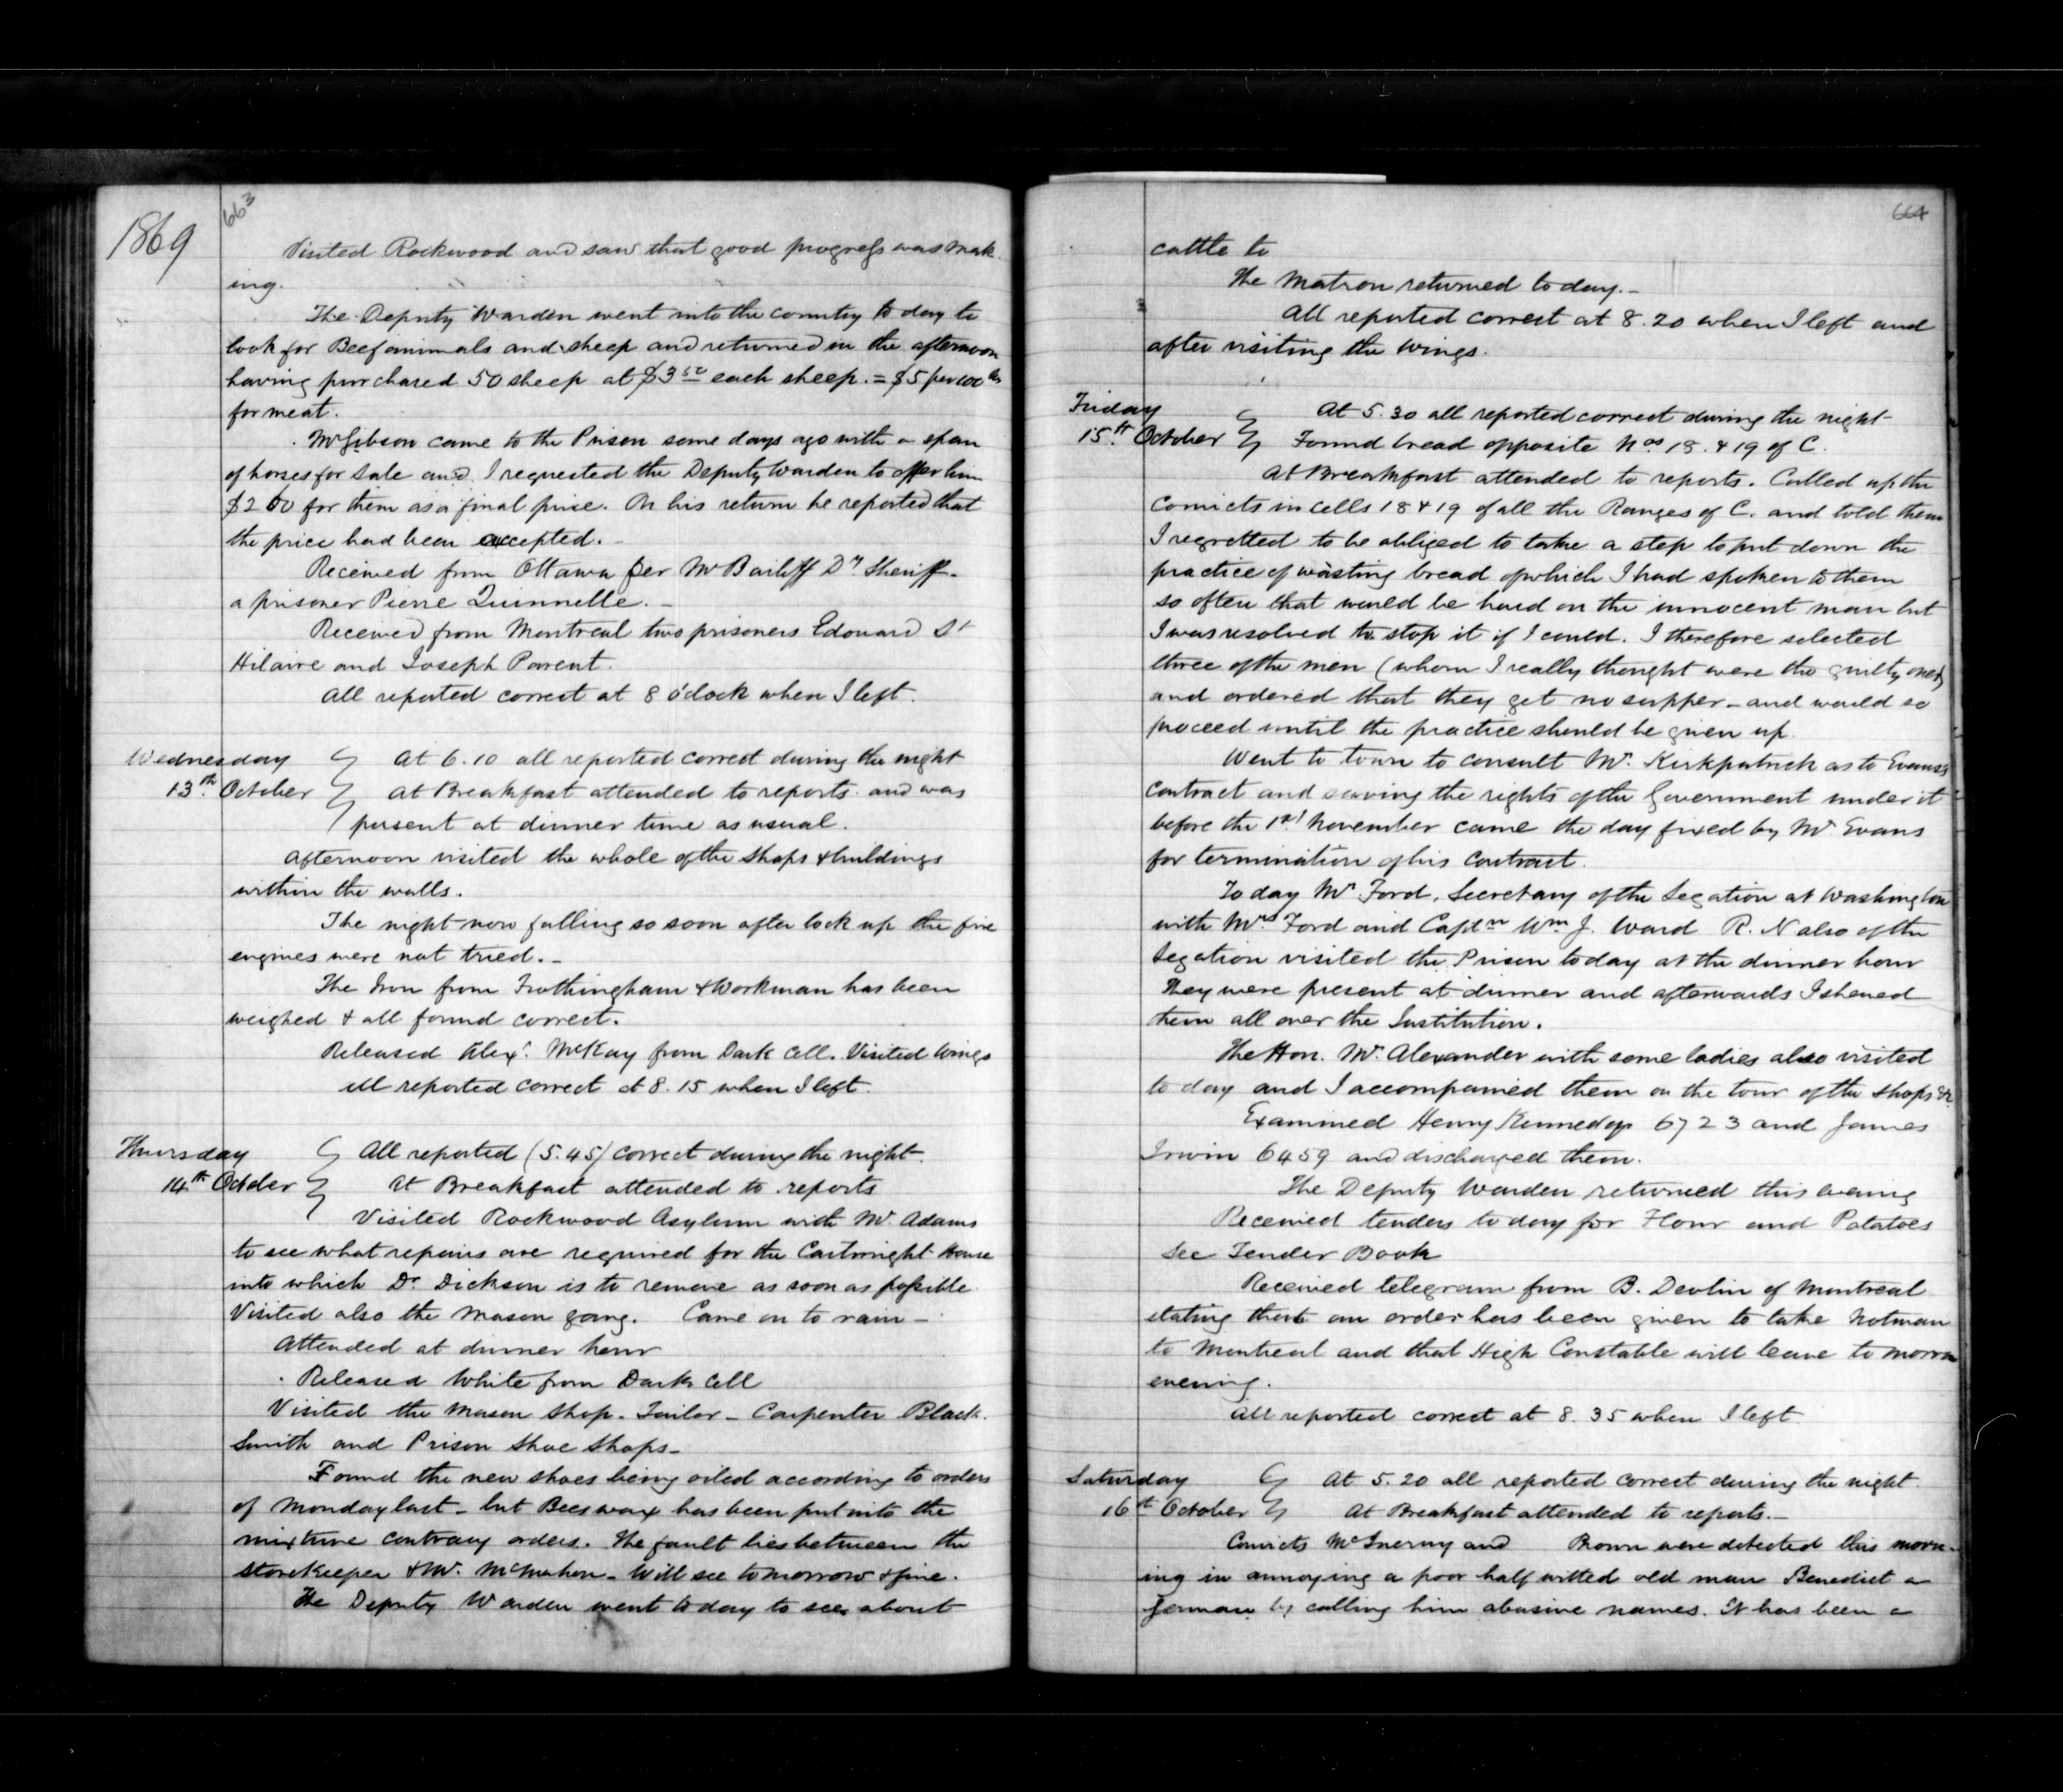 1869
663
Visited Rockwood and saw that good progress was mak
ing.
The Deputy Warden went into the country to day to
look for Beef animals and sheep and returned in the afternoon
having purchased 50 sheep at $3 50 each sheep. = $5 per 100 lbs
for meat.
Mr Gibson came to the Prison some days ago with a span
of horses for sale and I requested the Deputy Warden to offer him
$200 for them as a final price. On his return he reported that
the price had been accepted. -
Received from Ottawa per Mr Bailiff Dy Sheriff -
a prisoner Pierre Quinnelle. -
Received from Montreal two prisoners Edouard St
Hilaire and Joseph Parent.
All reported correct at 8 o'clock when I left.
Wednesday At 6.10 all reported correct during the night
13th October At Breakfast attended to reports and was
present at dinner time as usual.
Afternoon visited the whole of the Shops & buildings
within the walls.
The night now falling so soon after lock up the fire
engines were not tried. -
The Iron from Frothingham & Workman has been
weighed & all found correct.
Released Alexr McKay from Dark Cell. Visited wings
All reported correct at 8.15 when I left.
Thursday All reported (5.45) correct during the night.
14th October At Breakfast attended to reports
Visited Rockwood Asylum with Mr Adams
to see what repairs are required for the Cartwright House
into which Dr Dickson is to remove as soon as possible.
Visited also the Mason gang. Came on to rain -
Attended at dinner hour
Released White from Dark Cell
Visited the Mason Shop - Tailor - Carpenter Black.
Smith and Prison Shoe Shops -
Found the new shoes being oiled according to orders
of Monday last - but Beeswax has been put into the
mixture contrary orders. The fault lies between the
Storekeeper & Mr. McMahon - Will see tomorrow & fine.
The Deputy Warden went to day to see about
664
cattle to
The Matron returned to day. -
All reported correct at 8.20 when I left and
after visiting the Wings.
Friday At 5.30 all reported correct during the night
15th October Found bread opposite Nos 18 & 19 of C.
At Breakfast attended to reports. Called up the
Convicts in cells 18 & 19 of all the Ranges of C. and told them
I regretted to be obliged to take a step to put down the
practice of wasting bread of which I had spoken to them
so often that would be hard on the innocent man but
I was resolved to stop it if I could. I therefore selected
three of the men (whom I really thought were the guilty ones)
and ordered that they get no supper - and would so
proceed until the practice should be given up.
Went to town to consult Mr. Kirkpatrick as to Evans's
Contract and saving the rights of the Government under it
before the 1st November came the day fixed by Mr Evans
for termination of his contract.
To day Mr. Ford, Secretary of the Legation at Washington
with Mrs Ford and Captn Wm J. Ward R. N also of the
Legation visited the Prison today at the dinner hour
They were present at dinner and afterwards I shewed
them all over the Institution.
The Hon. Mr. Alexander with some ladies also visited
to day and I accompanied them on the tour of the Shops &c
Examined Henry Kennedy 6723 and James
Irwin 6459 and discharged them.
The Deputy Warden returned this evening
Received tenders today for Flour and Potatoes
See Tender Book
Received telegram from B. Devlin of Montreal
stating that an order has been given to take Notman
to Montreal and that High Constable will leave to morrow
evening.
All reported correct at 8.35 when I left
Saturday At 5.20 all reported correct during the night.
16th October At Breakfast attended to reports. -
Convicts McInerny and Brown were detected this morn-
ing in annoying a poor half witted old man Benedict a
German by calling him abusive names. It has been a